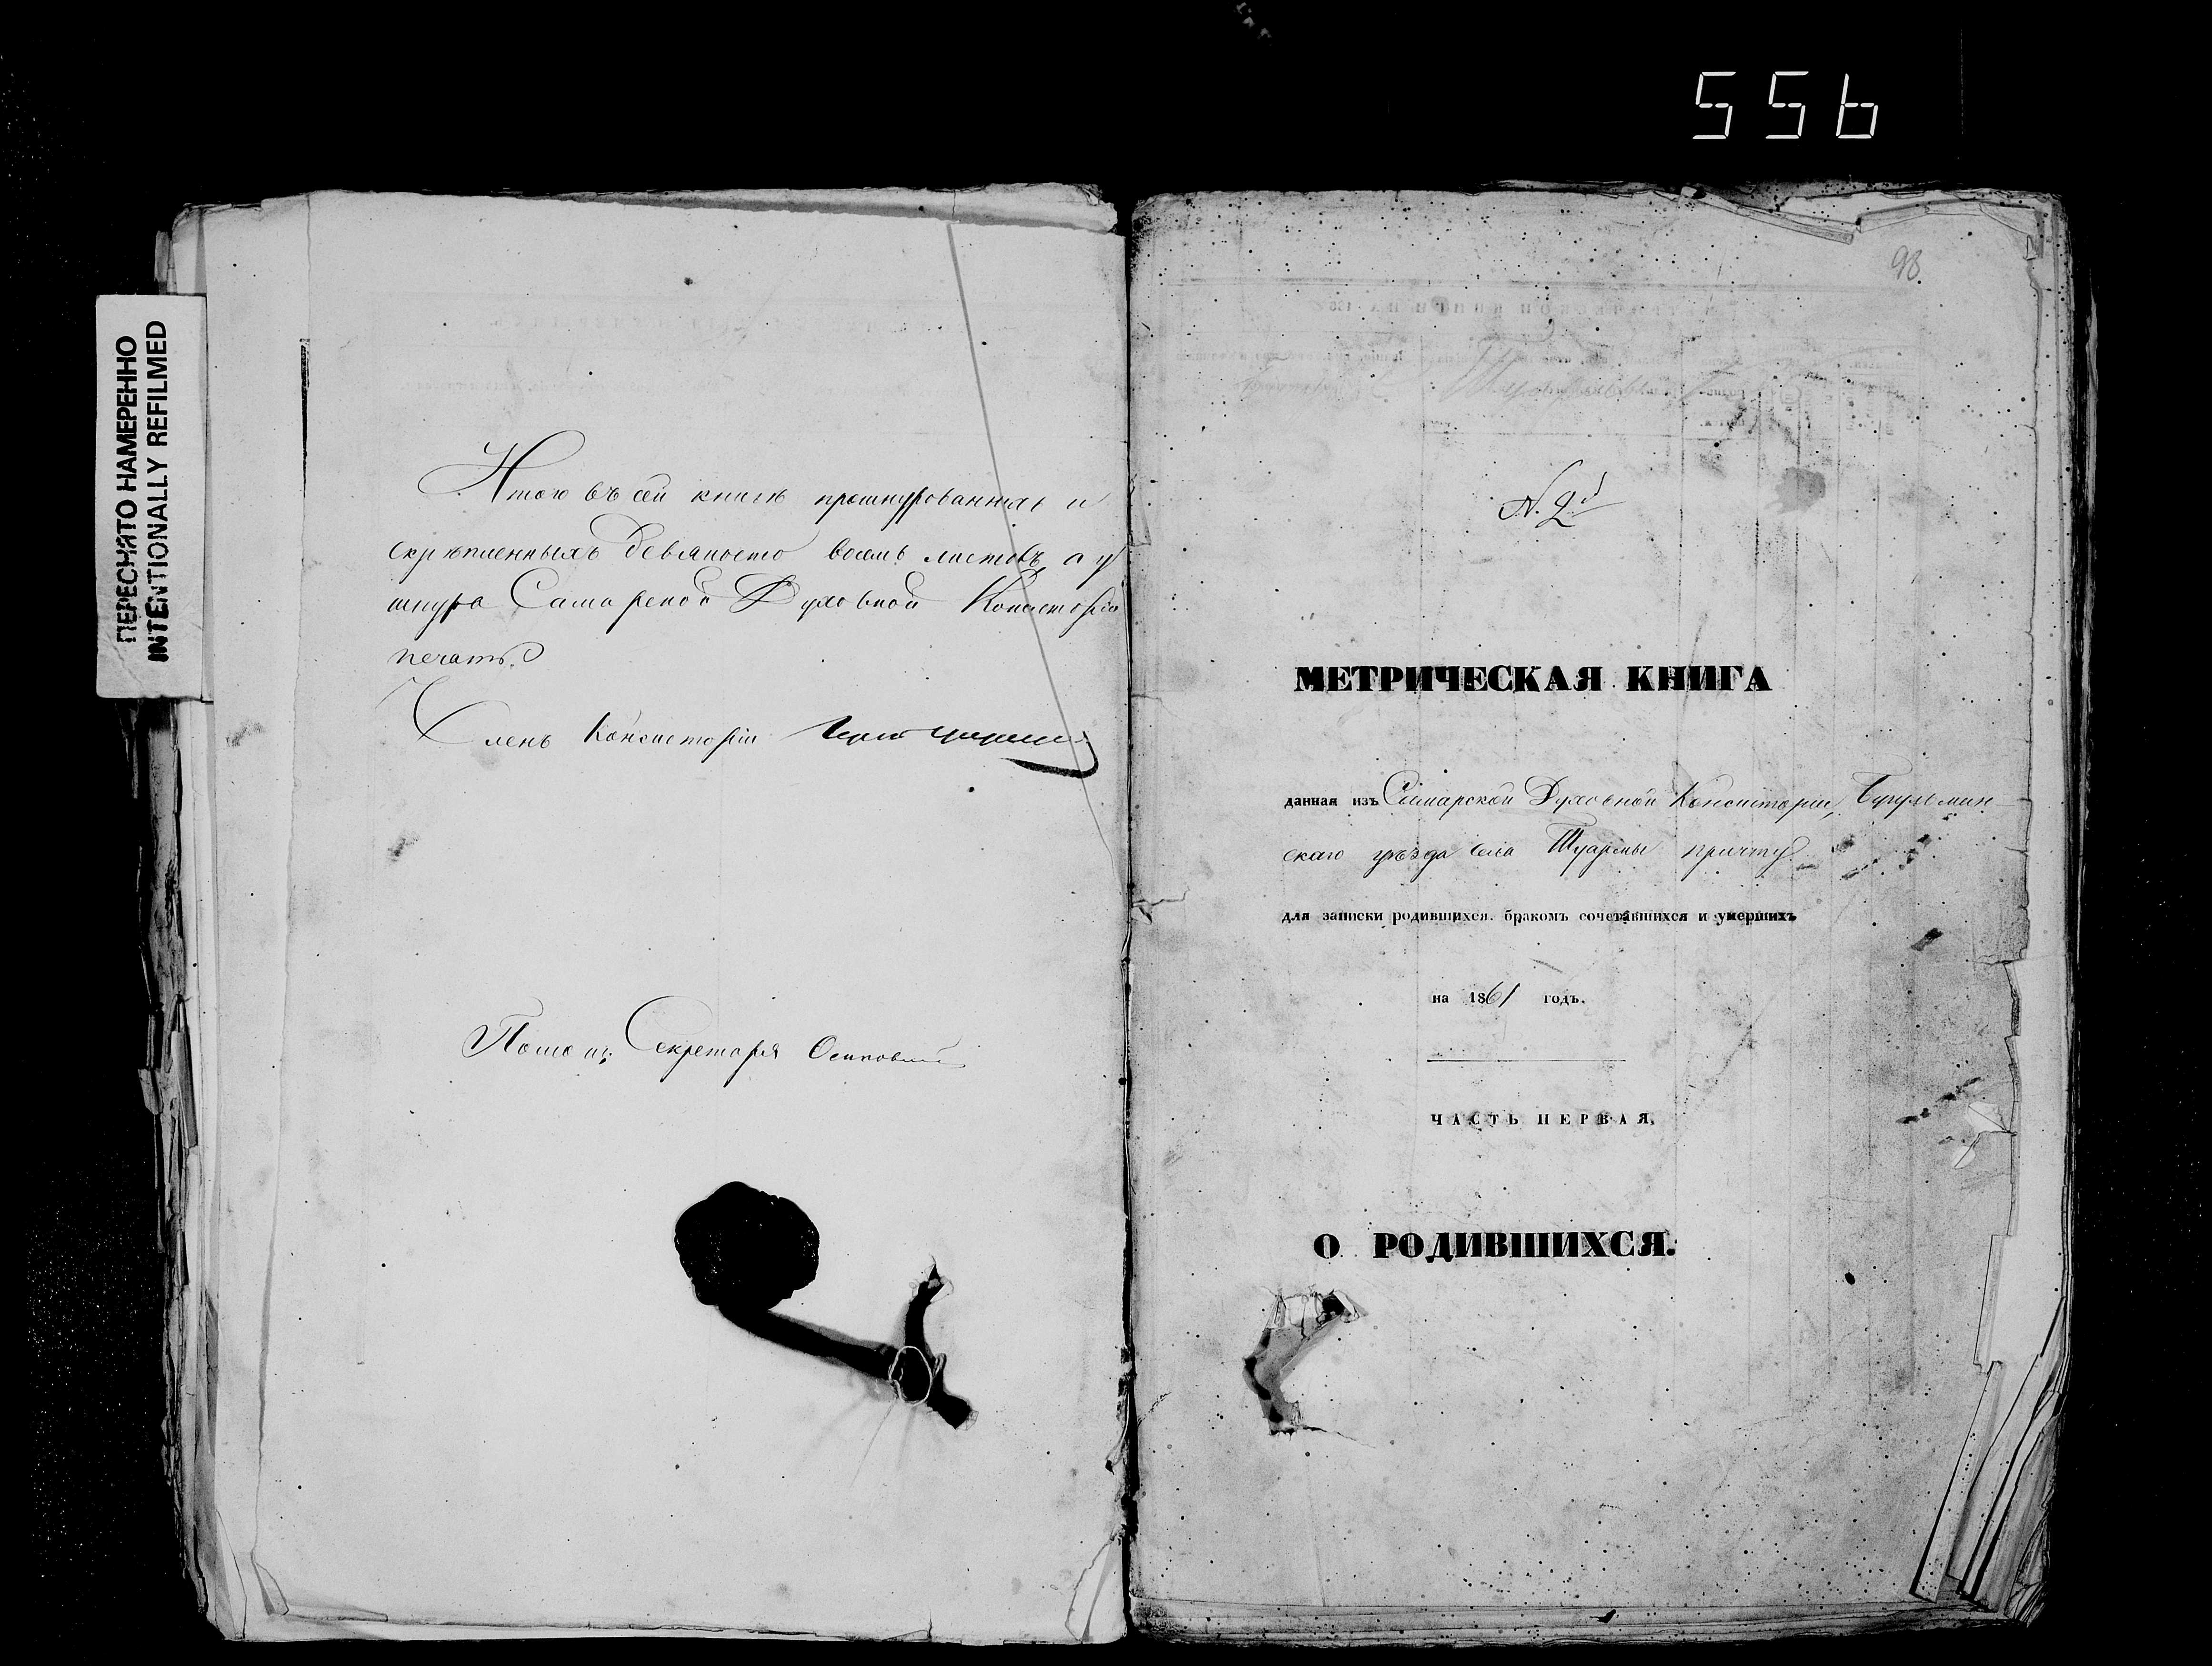 556
ПЕРЕСНЯТО НАМЕРЕННО
INTENTIONALLY REFILMED
Итого въ сей книгѣ прошнурованныхъ и
скрѣпленныхъ девяносто восемь листовъ, а у
шнура Самарской Духовной Консисторіи
печать.
Членъ Консисторіи
Помощ. Секретаря
98
N. 2й
МЕТРИЧЕСКАЯ КНИГА
данная изъ Самарской Духовной Консисторіи, Бугульмин
скаго уѣзда села Туармы причту
для записки родившихся. бракомъ сочетавшихся и умершихъ
на 1861 годъ.
ЧАСТЬ ПЕРВАЯ.
О РОДИВШИХСЯ.